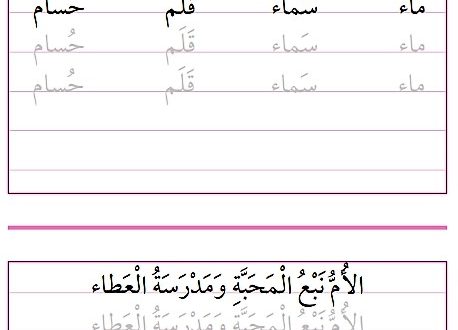 ماء سماء قلم حسام
ماء سَماء قَلَم حُسام
ماء سَماء قَلَم حُسام
الأُمُّ نَبْعُ الْمَحَبَّةِ وَمَدْرَسَةُ الْعَطاء
الأُمُّ نَبْعُ الْمَحَبَّةِ وَمَدْرَسَةُ الْعَطاء